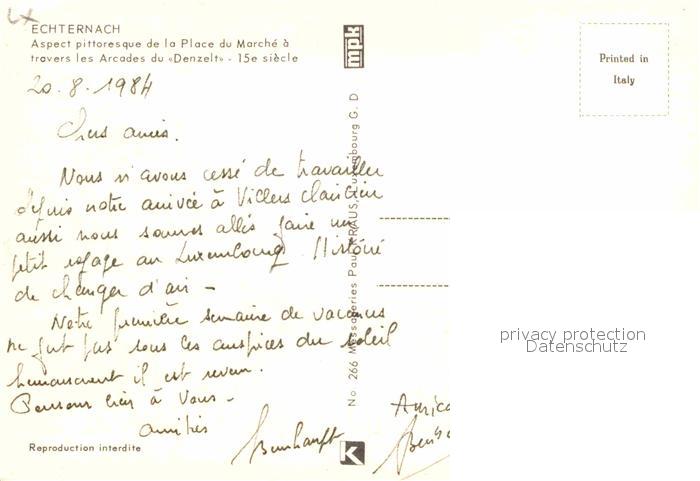 LX
ECHTERNACH
Aspect pittoresque de la Place du Marché à
travers les Arcades du «Denzelt» - 15e siècle
20.8.1984
Chers amis.
Nous n'avons cessé de travailler
depuis notre arrivée à Villers
aussi nous sommes allés faire un
petit voyage au Luxembourg. Histoire
de changer d'air -
Notre première semaine de vacances
ne fut pas sous les auspices du soleil
heureusement il est revenu.
Pensons bien à Vous -
amitiés
Reproduction interdite
mpk
No 266 Messageries Paul KRAUS, Luxembourg G. D
K
Printed in
Italy
privacy protection
Datenschutz